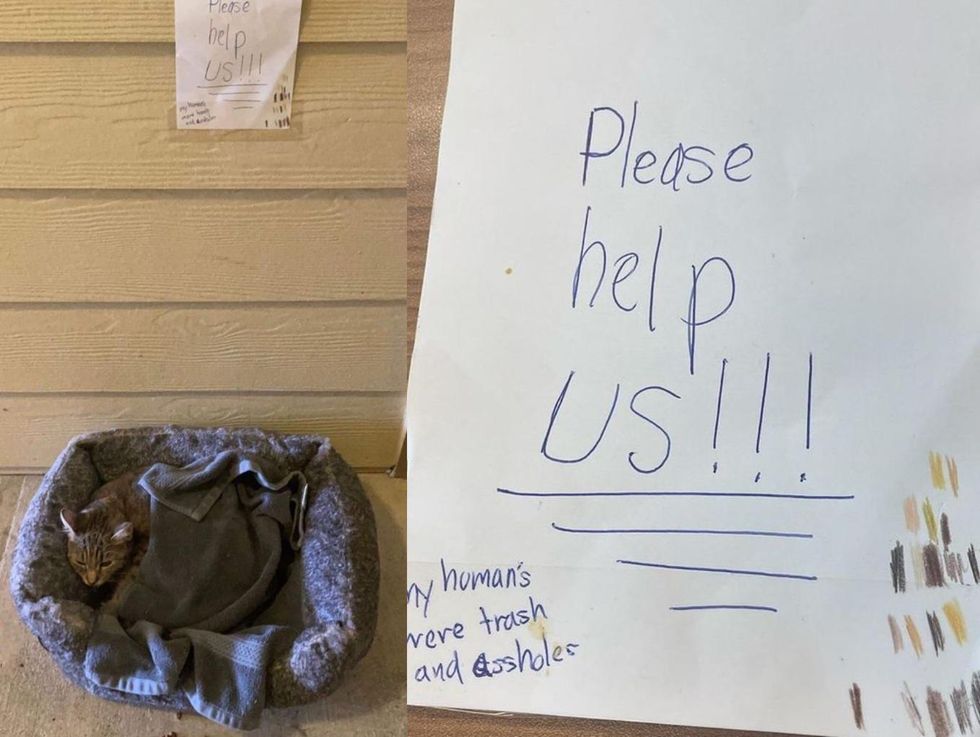 Please
help
US!!!
my human's
were trash
and assholes
Please
help
US!!!
my human's
were trash
and assholes